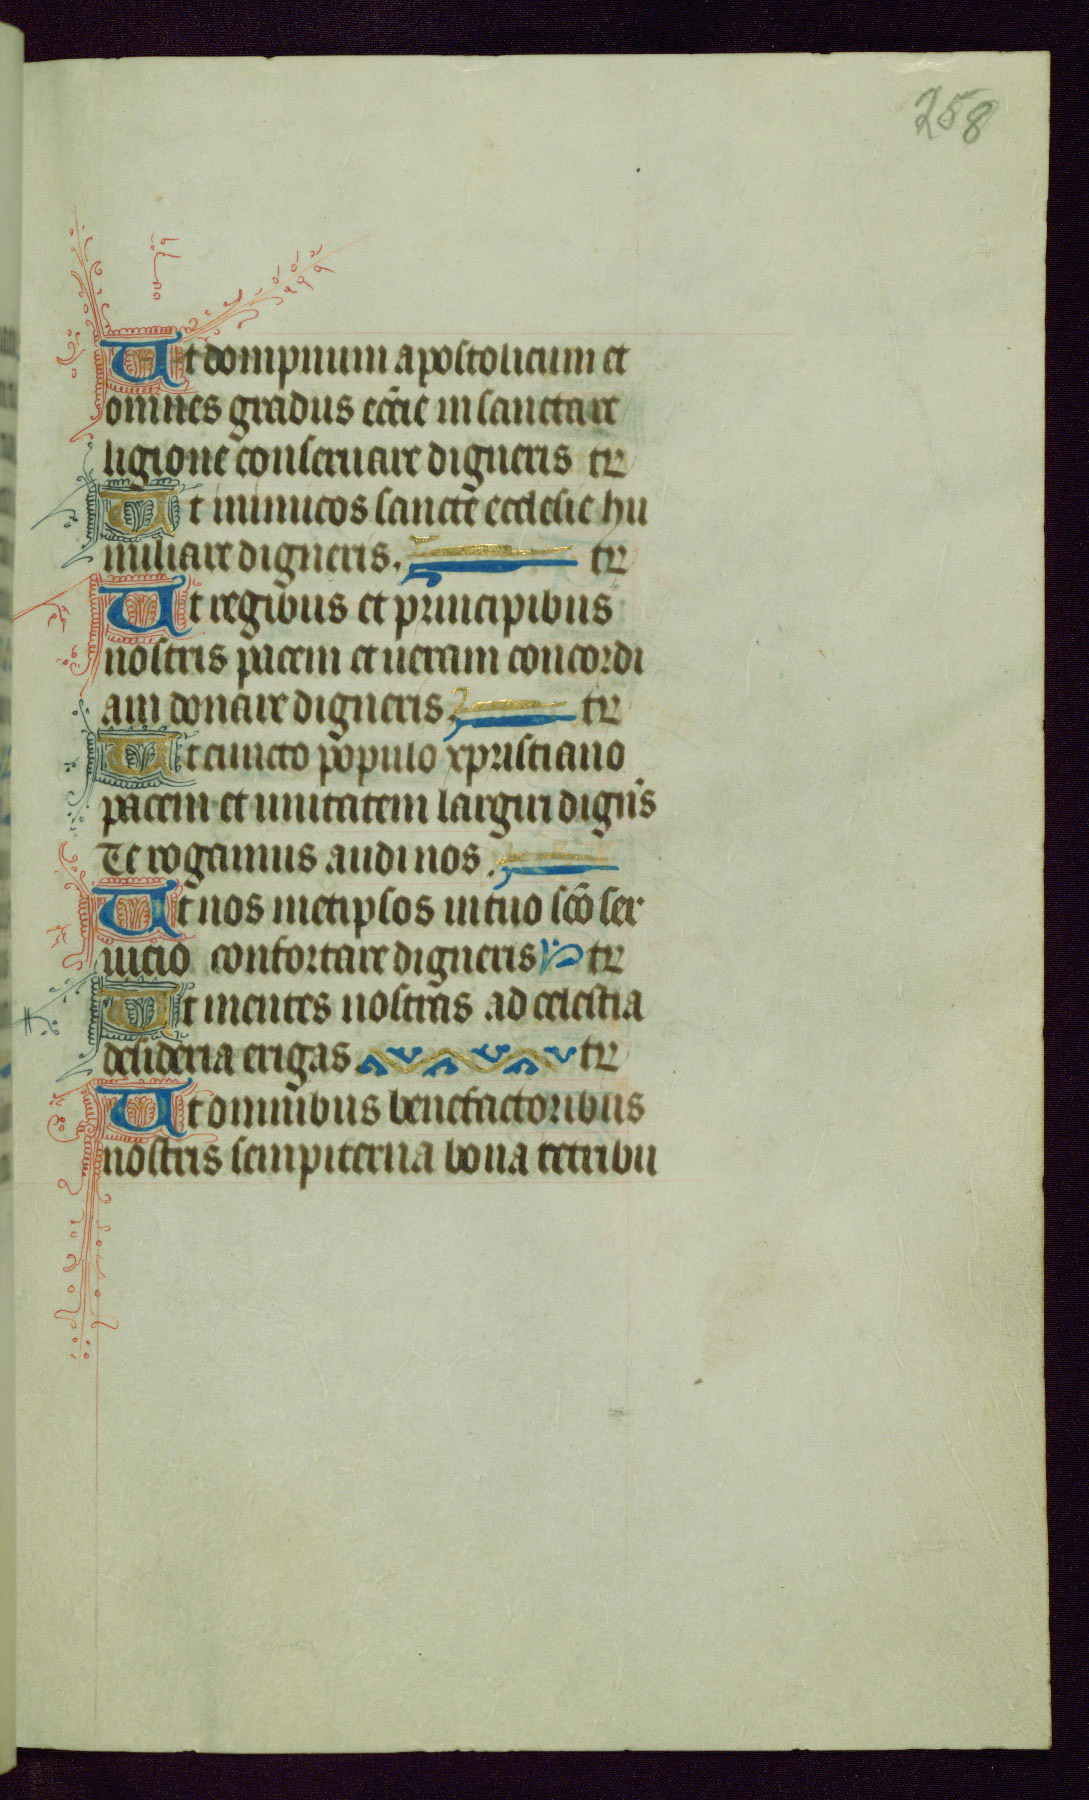 258
Ut dompnum apostolicum et
omnes gradus ecc̄ie in sancta re
ligione conseruare digneris tr̄
Ut inimicos sancte ecclesie hu
miliare digneris. tr̄
Ut regibus et principibus
nostris pacem et ueram concordi
am donare digneris. tr̄
Ut cuncto populo xpristiano
pacem et unitatem largiri dign̄s
Te rogamus audi nos.
Ut nos metipsos in tuo sc̄o ser
uicio confortare digneris tr̄
Ut mentes nostras ad celestia
desideria erigas. tr̄
Ut omnibus benefactoribus
nostris sempiterna bona retribu